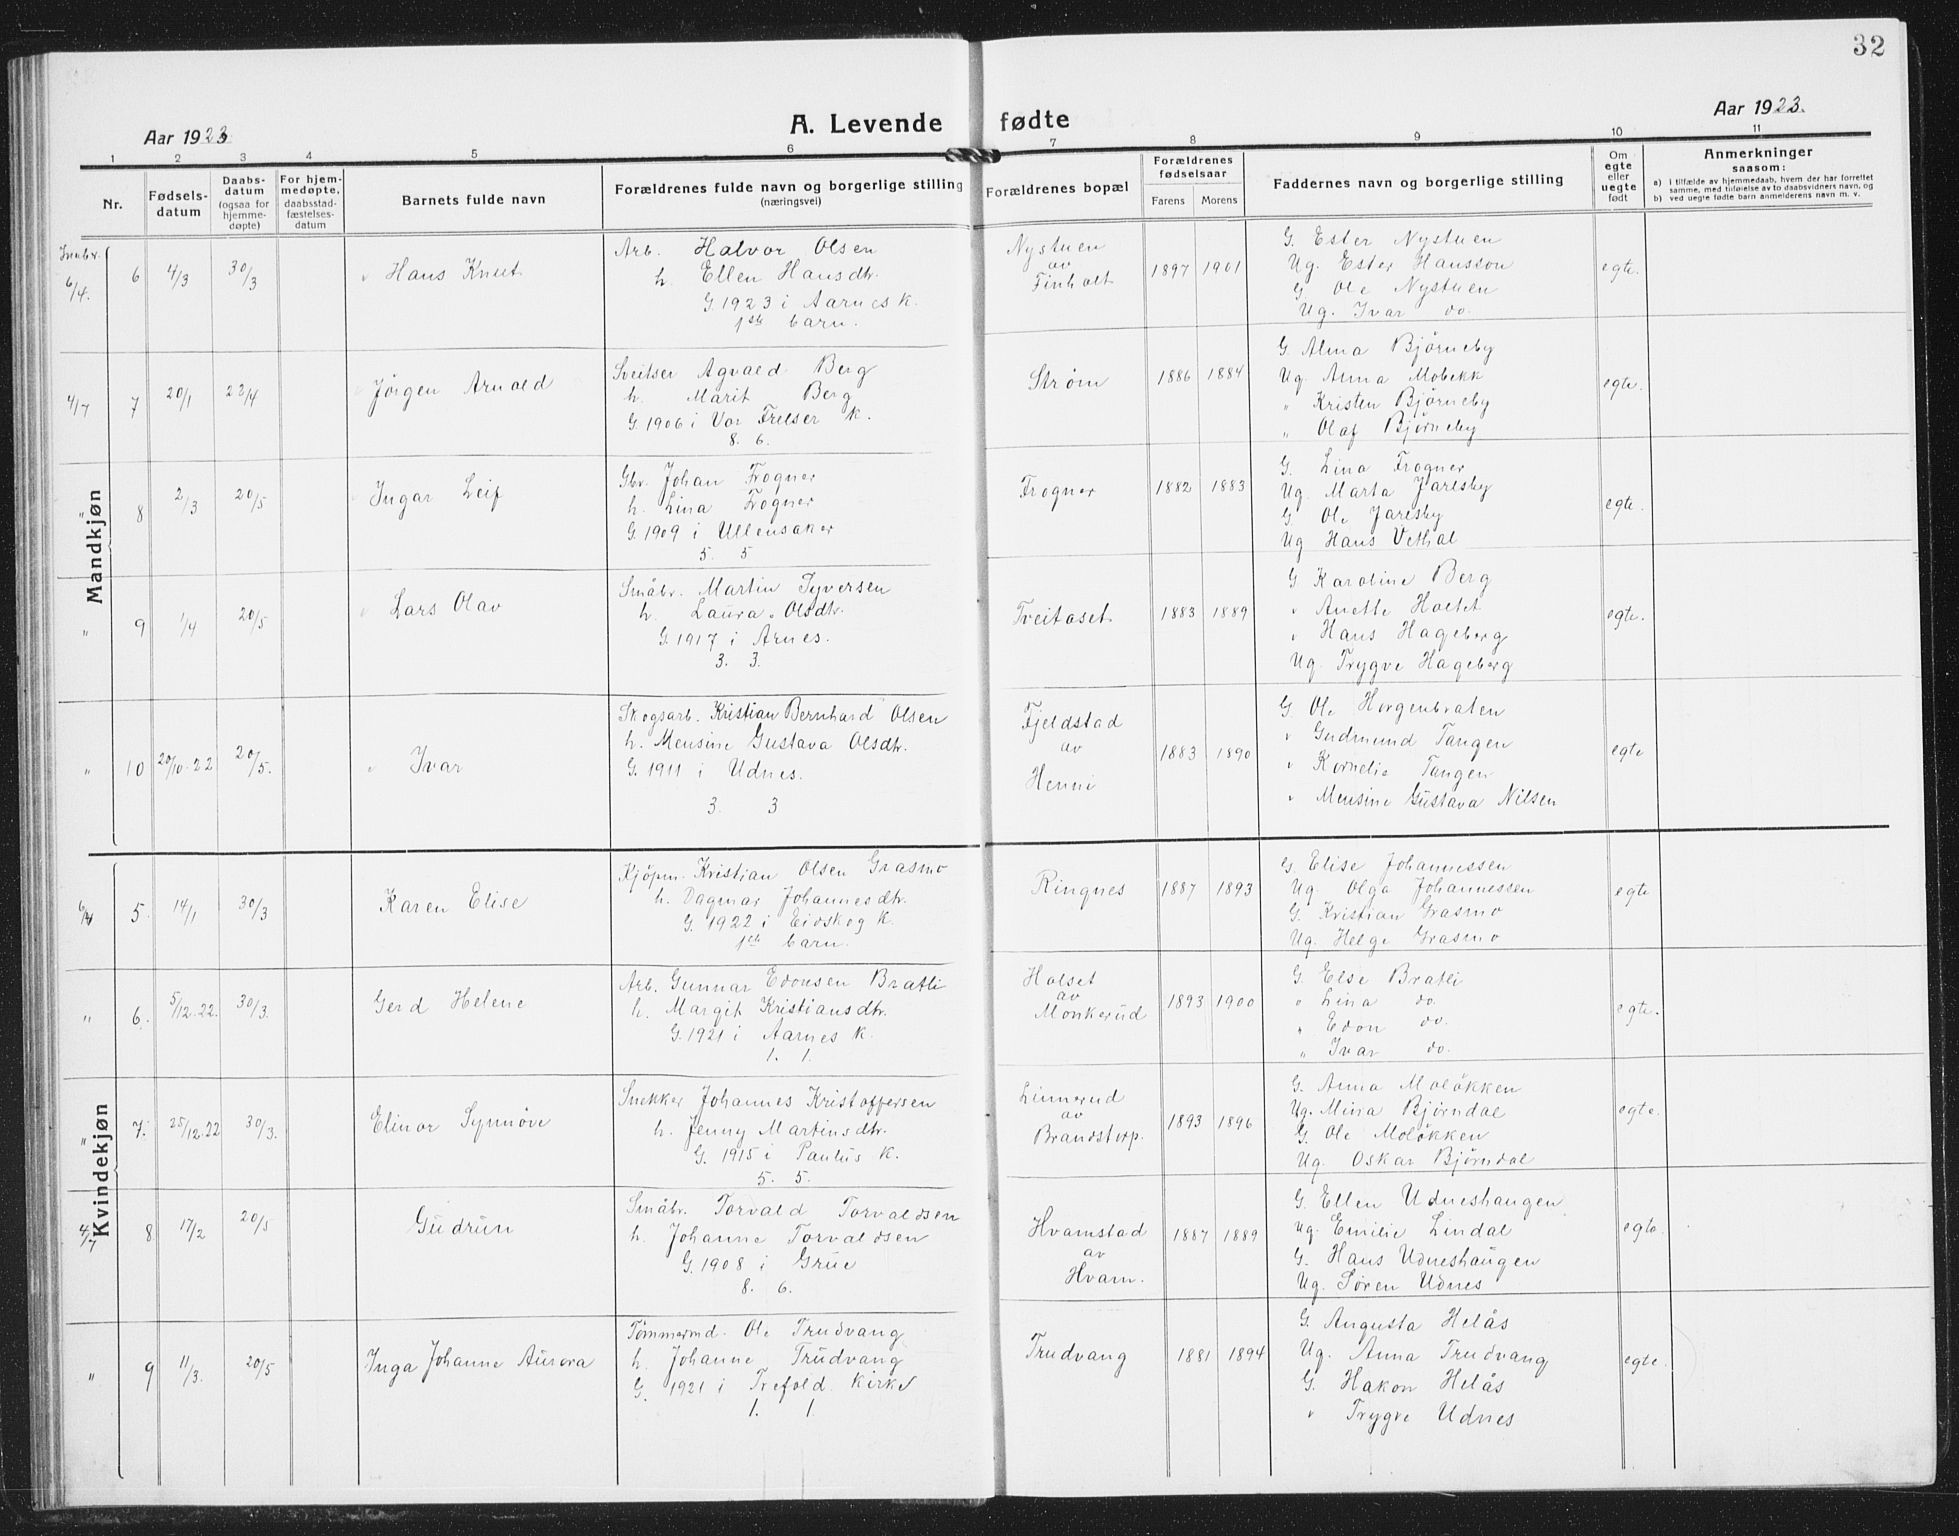 32
Aar 1923 A. Levende fødte Aar 1923.
1 2 3 4 5 6 7 8 9 10 11
Nr.
Fødsels-
datum
Daabs-
datum
(ogsaa for
hjemme-
døpte)
For hjem-
medøpte,
daabsstad-
fæstelses-
datum
Barnets fulde navn
Forældrenes fulde navn og borgerlige stilling
(næringsvei)
Forældrenes bopæl
Forældrenes
fødselsaar
Farens Morens
Faddernes navn og borgerlige stilling
Om
egte
eller
uegte
født
Anmerkninger
saasom:
a) i tilfælde av hjemmedaab, hvem der har forrettet
samme, med tilføielse av to daabsvidners navn, og
b) ved uegte fødte barn anmelderens navn m. v.
Mandkjøn
6/4. 6 4/3 30/3 Hans Knut
Arb. Halvor Olsen
h. Ellen Hansdtr.
G. 1923 i Aarnes k.
1ste barn.
Nystuen
av
Finholt
1897 1901
G. Ester Nystuen
Ug. Ester Hansson
G. Ole Nystuen
Ug. Ivar do.
egte.
4/7 7 20/1 22/4 Jørgen Arnold
Sveitser Agvald Berg
h. Marit Berg
G. 1906 i Vor Frelser k.
8. 6.
Strøm
1886 1884
G. Alma Bjørneby
Ug. Anna Mobekk
" Kristen Bjørneby
" Olaf Bjørneby
egte.
" 8 2/3 20/5 Ingar Leif
Gbr. Johan Frogner
h. Lina Frogner
G. 1909 i Ullensaker
5 5
Frogner
1882 1883
G. Lina Frogner
Ug. Marta Jarlsby
G. Ole Jarlsby
Ug Hans Vethal
egte.
" 9 1/4 20/5 Lars Olav
Småbr. Martin Syversen
h. Laura Olsdtr.
G. 1917 i Arnes.
3. 3.
Tveitaset
1883 1889
G Karoline Berg
" Anette Holtet
" Hans Hageberg
Ug. Trygve Hageberg
egte.
" 10 20/10-22 20/5. Ivar
Skogsarb. Kristian Bernhard Olsen
h. Mensine Gustava Olsdtr.
G. 1911 i Udnes.
3. 3
Fjeldstad
av
Henni
1883 1890
G. Ole Horgenbraten
" Gudmund Tangen
" Kornelie Tangen
" Mensine Gustava Nilsen
egte
Kvindekjøn
6/4 5. 14/1 30/3 Karen Elise
Kjöpm. Kristian Olsen Grasmo
h. Dagmar Johannesdtr.
G. 1922 i Eidskog k.
1ste barn.
Ringnes
1887 1893
G. Elise Johannessen
Ug. Olga Johannessen
G. Kristian Grasmo
Ug. Helge Grasmo
egte
" 6. 5/12-22. 30/3. Gerd Helene
Arb. Gunnar Edonsen Bratli
h. Margit Kristiansdtr.
G. 1921 i Aarnes k.
1. 1.
Holset
av
Monkerud
1893 1900
G. Else Bratli
" Lina do.
" Edon do.
" Ivar do.
egte.
" 7. 25/12-22 30/3. Elinor Synnøve
Snekker Johannes Kristoffersen
h. Jenny Martinsdtr.
G. 1915 i Paulus k.
5. 5.
Linnerud
av
Brandstorp.
1893 1896
G. Anna Moløkken
Ug. Mina Bjørndal
G. Ole Moløkken
Ug. Oskar Bjørndal
egte.
4/7 8 17/2 20/5 Gudrun
Småbr. Torvald Torvaldsen
h. Johanne Torvaldsen
G. 1908 i Grue
8. 6.
Hvamstad
av
Hvam.
1887 1889
G. Ellen Udneshaugen
Ug. Emilie Lindal
G. Hans Udneshaugen
Ug. Søren Udnes
egte.
" 9 11/3. 20/5 Inga Johanne Aurora
Tømmermd. Ole Trudvang
h. Johanne Trudvang
G. 1921 i Trefold. kirke
1. 1.
Trudvang
1881 1894
G. Augusta Helås
Ug. Anna Trudvang
G. Hakon Helås
" Trygve Udnes
egte.